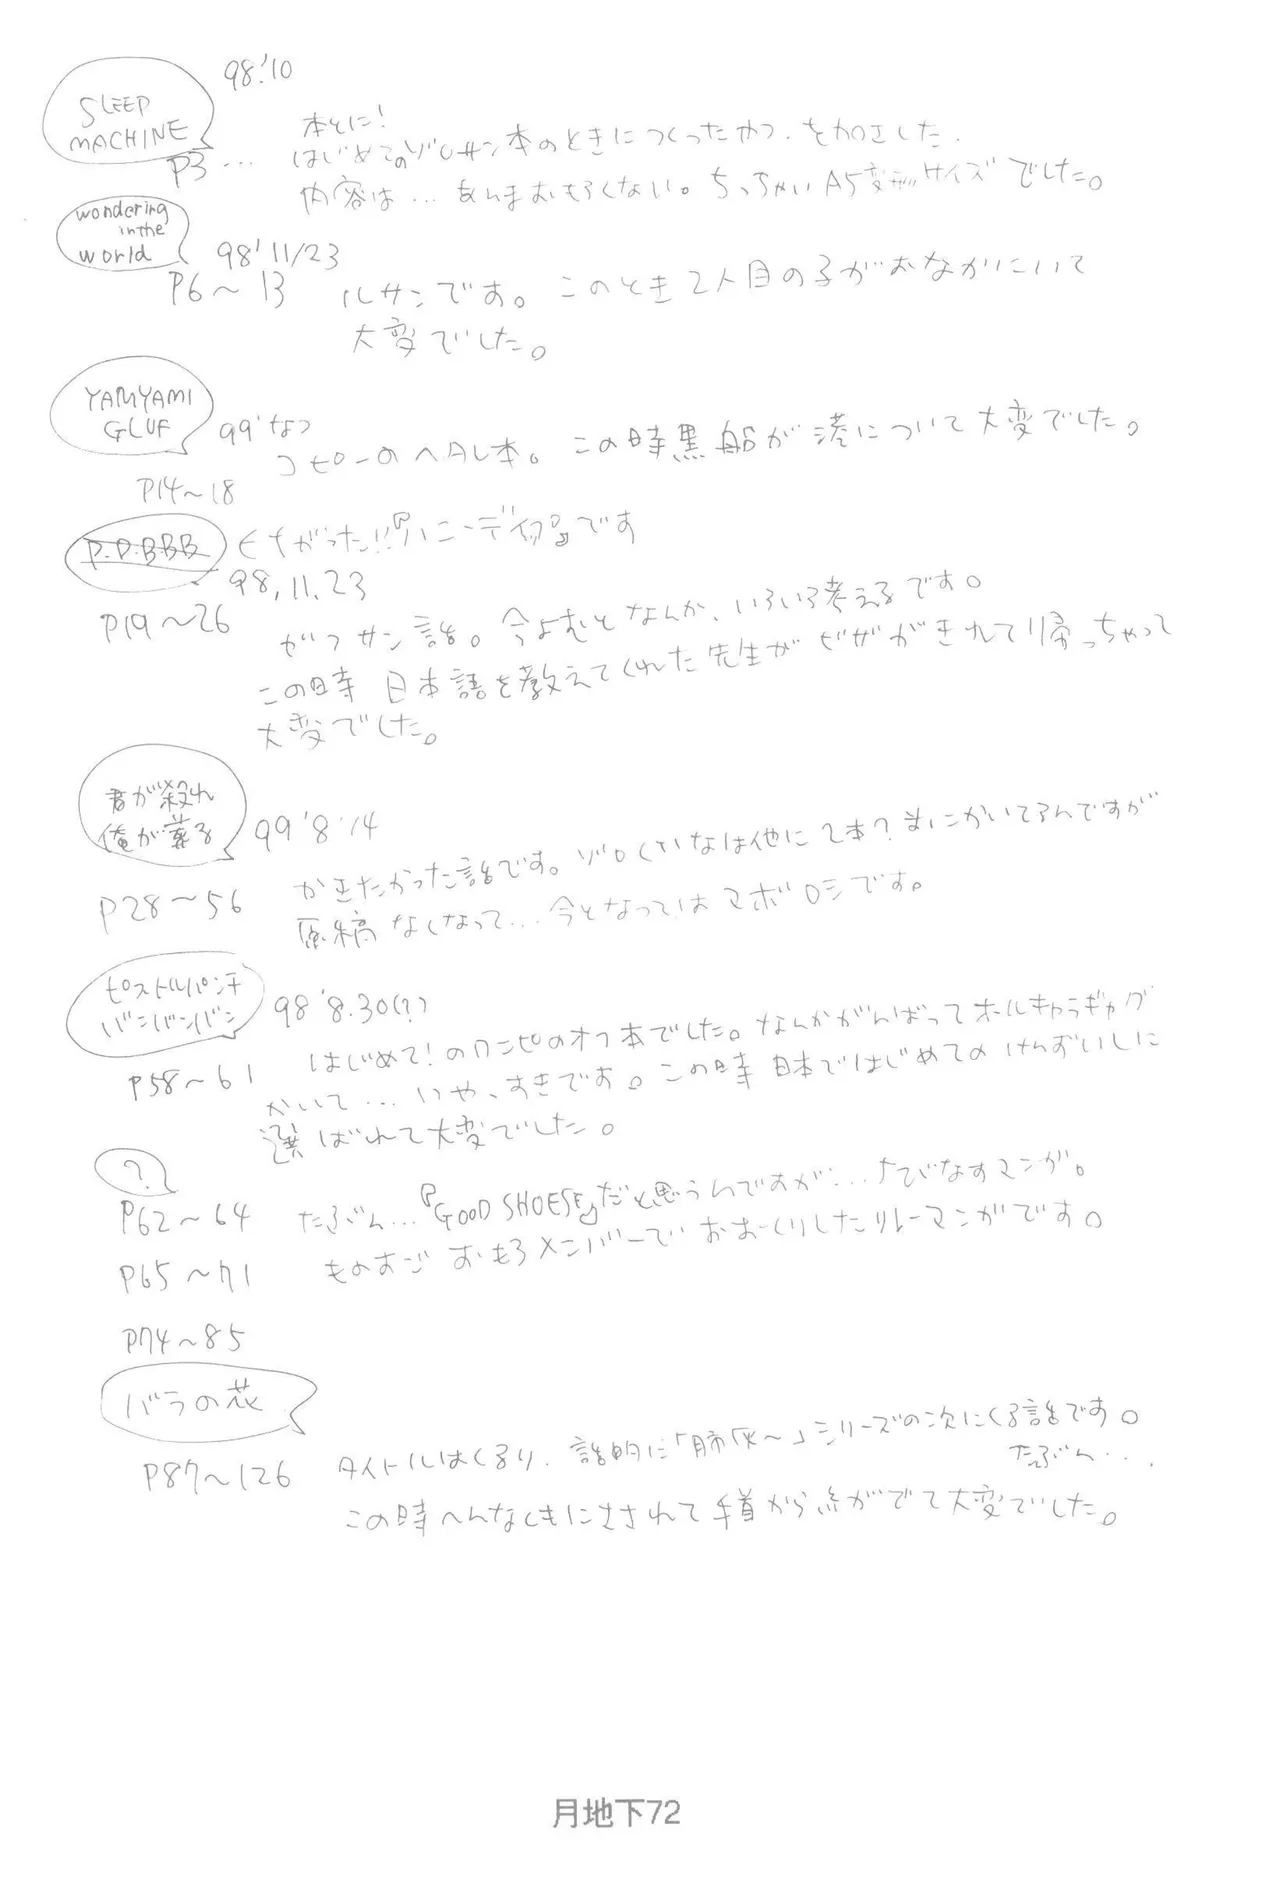 SLEEP
MACHINE
98.'10
P3…
本とに!
はじめてのゾロサン本のときにつくったやつ.を加工した.
内容は…あんまおもろくない。ちっちゃいA5変形サイズでした。
wondering
in the
world
98' 11/23
P6〜13
ルサンです。このとき2人目の子がおなかにいて
大変でした。
YAMYAMI
GLUF
99'なつ
コピーのヘタレ本。この時黒船が港について大変でした。
P14〜18
P.D.BBB
まちがった!!『ハニーデイズ』です
98.11.23
P19〜26
がフサン話。今よむとなんか、いろいろ考えるです。
この時 日本語を教えてくれた先生がビザがきれて帰っちゃって
大変でした。
君が殺れ
俺が葬る
99'8'14
P28〜56
かきたかった話です。ゾロくいなは他に2本?まにかいてるんですが
原稿なくなって…今となってはマボロシです。
ピストルパンチ
バンバンバン
98'8.30(?)
P58〜61
はじめて!のワンピのオフ本でした。なんかがんばってオールキャラギャグ
かいて…いや、すきです。この時 日本ではじめての けんずいしに
選ばれて大変でした。
?
P62〜64
たぶん…『GOOD SHOESE』だと思うんですが…ナビなすマンガ。
P65〜71
ものすご おもろメンバーで おおくりしたリレーマンガです。
P74〜85
バラの花
P87〜126
タイトルはくるり.話的に「肺灰〜」シリーズの次にくる話です。
たぶん…
この時へんなくもにさされて手首から糸がでて大変でした。
月地下72